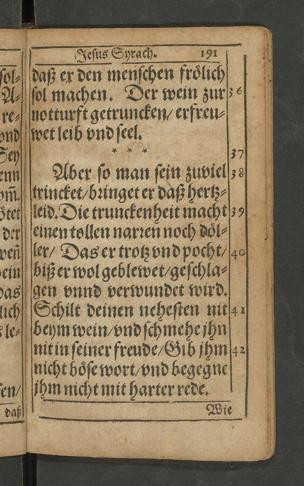 Jesus Syrach. 191
daß er den menschen frölich
sol machen. Der wein zur 36
notturfft getruncken/ erfreu-
wet leib vnd seel.
* * *
37
Aber so man sein zuviel 38
trincket/ bringet er daß hertz-
leid. Die trunckenheit macht 39
einen tollen narren noch döl-
ler/ Das er trotz vnd pocht/ 40
biß er wol geblewet/ geschla-
gen vnnd verwundet wird.
Schilt deinen nehesten nit 41
beym wein/ vnd schmehe jhn
nit in seiner freude/ Gib jhm 42
nicht böse wort/ vnd begegne
jhm nicht mit harter rede.
Wie
sol-
A-
re-
vnd
Sey
enn
ötet
der
wen̄
ein
das
lich
sle-
sen/
daß